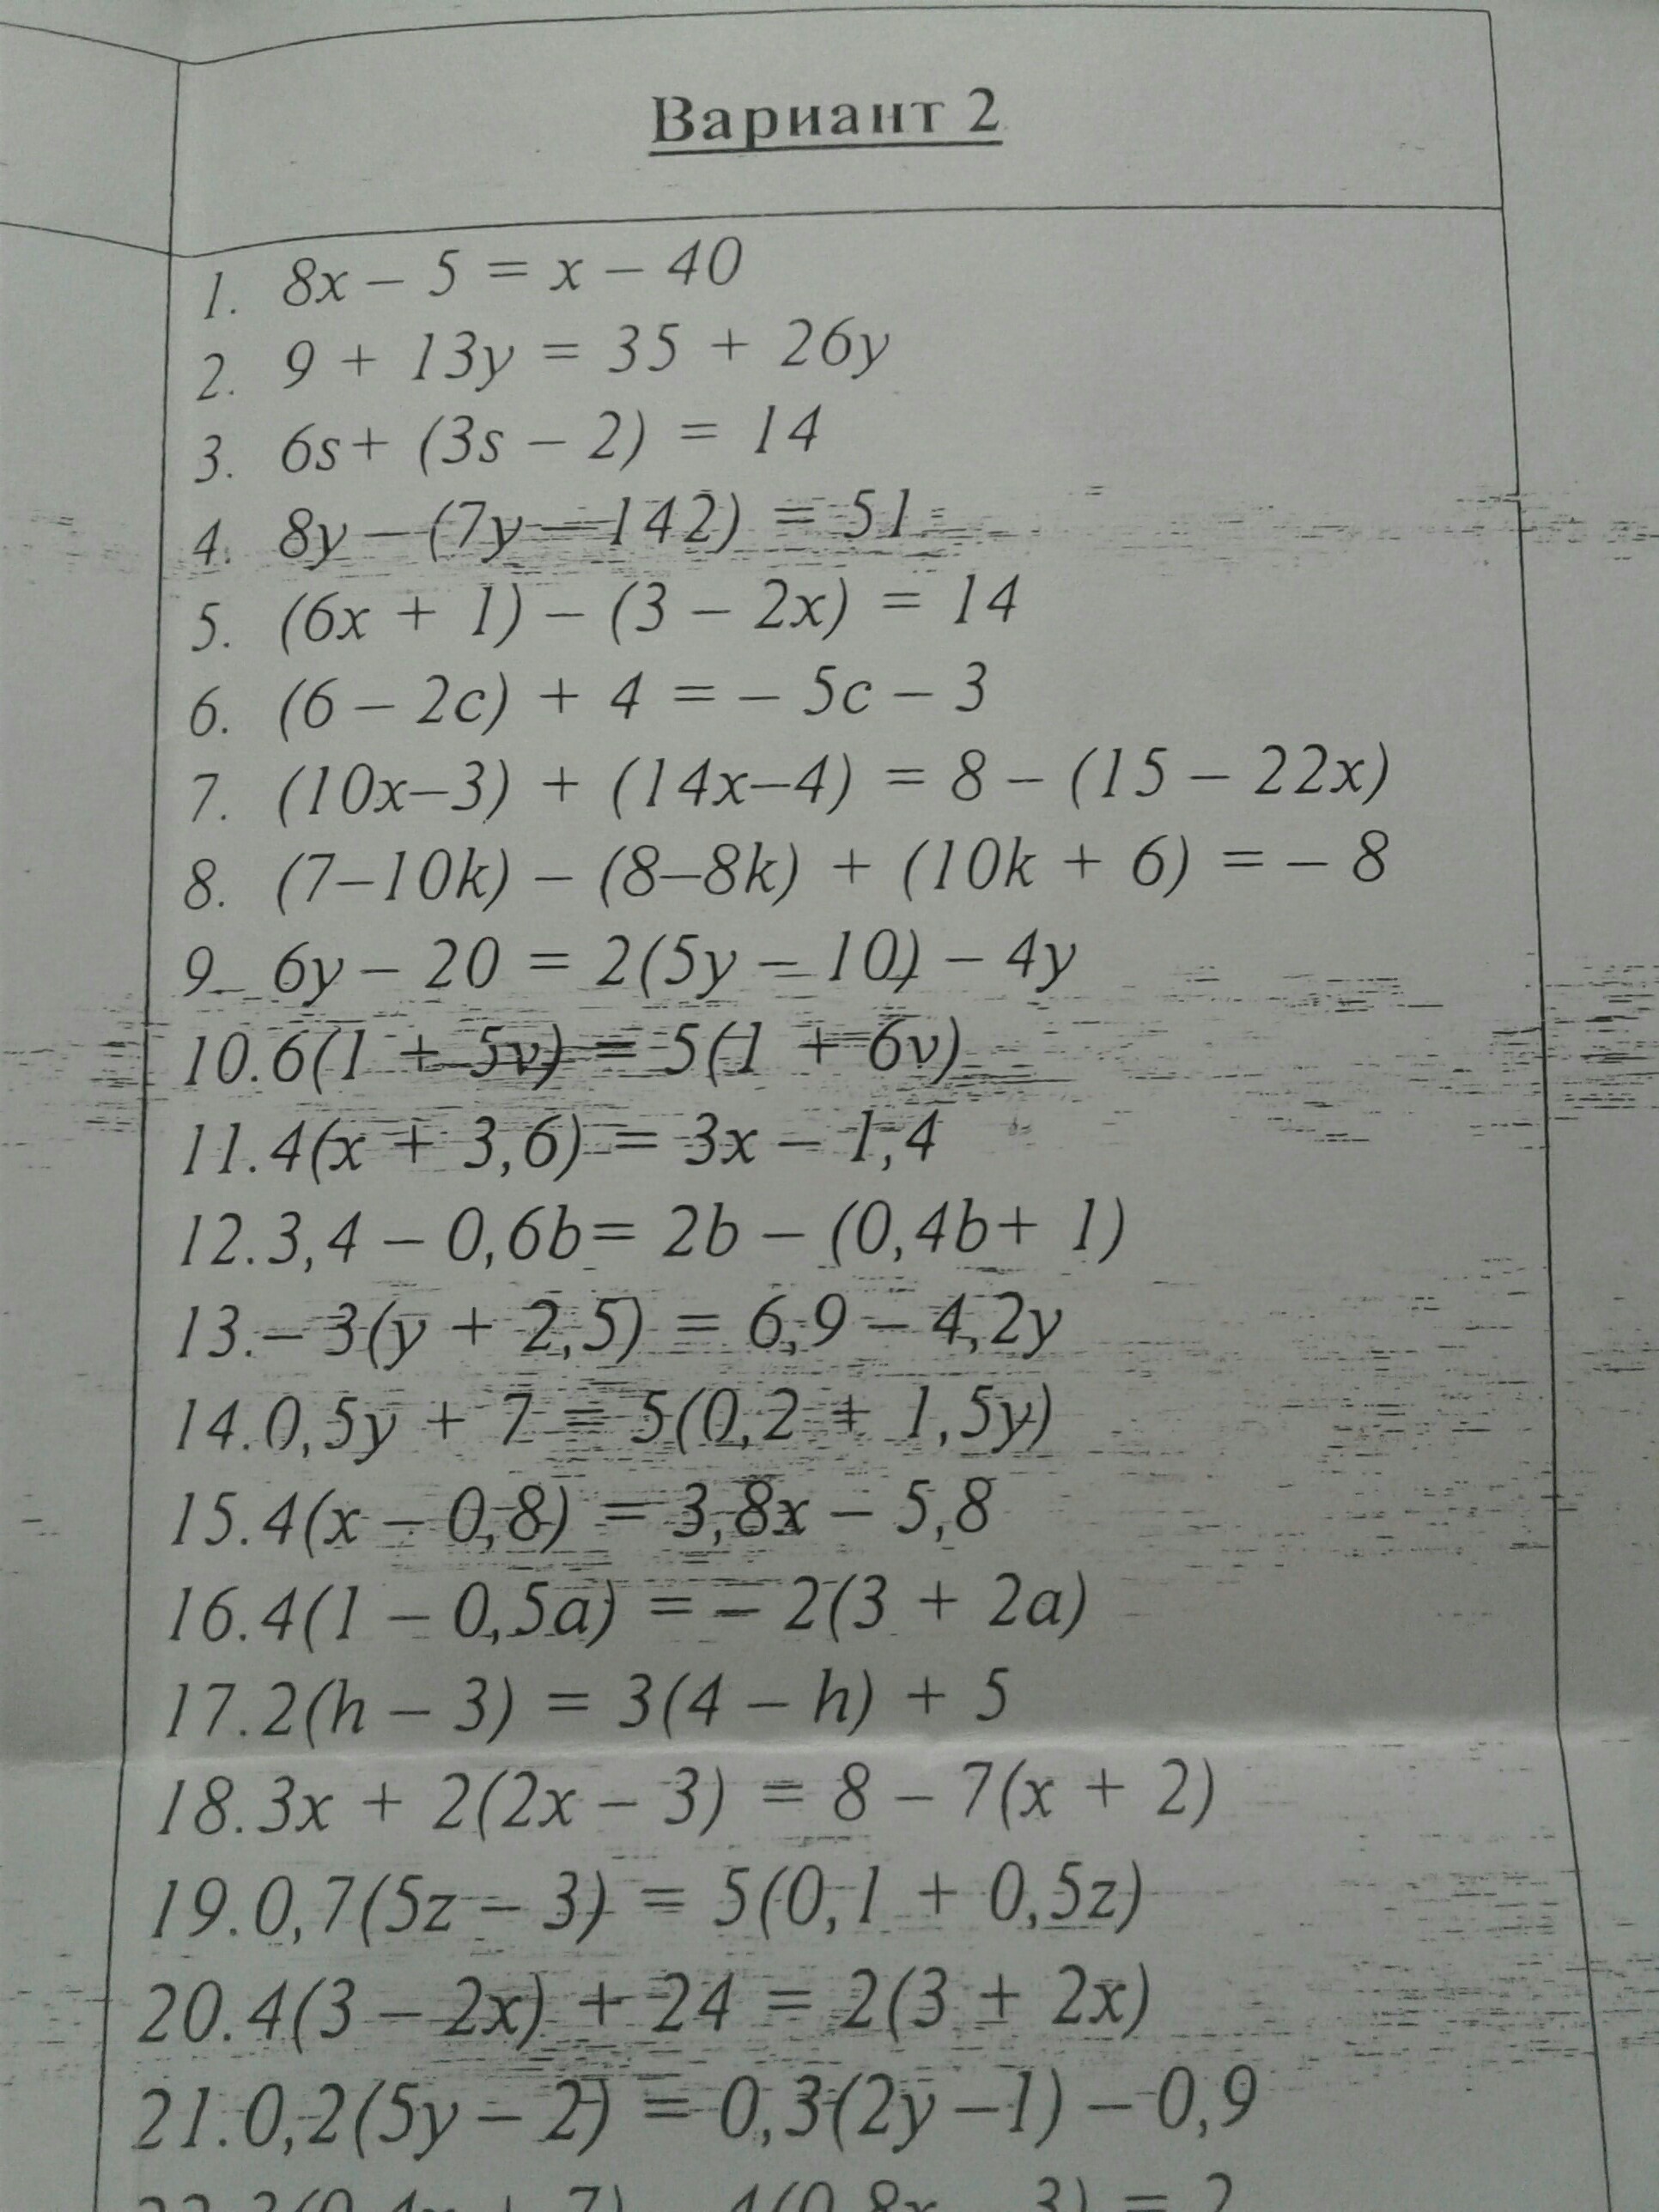 Вариант 2
1. 8x – 5 = x – 40
2. 9 + 13y = 35 + 26y
3. 6s+ (3s – 2) = 14
4. 8y – (7y – 142) = 51
5. (6x + 1) – (3 – 2x) = 14
6. (6 – 2c) + 4 = – 5c – 3
7. (10x–3) + (14x–4) = 8 – (15 – 22x)
8. (7–10k) – (8–8k) + (10k + 6) = – 8
9. 6y – 20 = 2(5y – 10) – 4y
10.6(1 + 5v) = 5(1 + 6v)
11.4(x + 3,6) = 3x – 1,4
12.3,4 – 0,6b= 2b – (0,4b+ 1)
13.– 3(y + 2,5) = 6,9 – 4,2y
14.0,5y + 7 = 5(0,2 + 1,5y)
15.4(x – 0,8) = 3,8x – 5,8
16.4(1 – 0,5a) = – 2(3 + 2a)
17.2(h – 3) = 3(4 – h) + 5
18.3x + 2(2x – 3) = 8 – 7(x + 2)
19.0,7(5z – 3) = 5(0,1 + 0,5z)
20.4(3 – 2x) + 24 = 2(3 + 2x)
21.0,2(5y – 2) = 0,3(2y –1) – 0,9